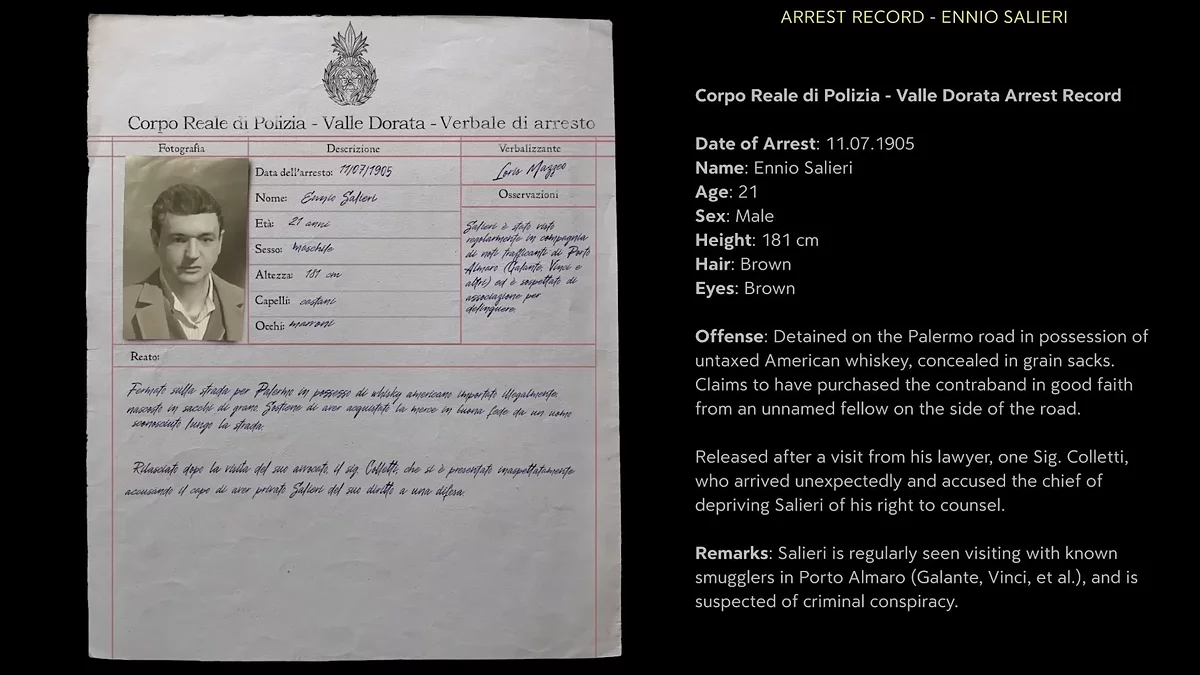 ARREST RECORD - ENNIO SALIERI
Corpo Reale di Polizia - Valle Dorata - Verbale di arresto
Fotografia
Descrizione
Verbalizzante
Data dell'arresto: 11/07/1905
Nome: Ennio Salieri
Età: 21 anni
Sesso: maschile
Altezza: 181 cm
Capelli: castani
Occhi: marroni
Loris Mazzeo
Osservazioni
Salieri è stato visto
regolarmente in compagnia
di noti trafficanti di Porto
Almaro (Galante, Vinci e
altri) ed è sospettato di
associazione per
delinquere.
Reato:
Fermato sulla strada per Palermo in possesso di whisky americano importato illegalmente,
nascosto in sacchi di grano. Sostiene di aver acquistato la merce in buona fede da un uomo
sconosciuto lungo la strada.
Rilasciato dopo la visita del suo avvocato, il sig. Colletti, che si è presentato inaspettatamente
accusando il capo di aver privato Salieri del suo diritto a una difesa.
Corpo Reale di Polizia - Valle Dorata Arrest Record
Date of Arrest: 11.07.1905
Name: Ennio Salieri
Age: 21
Sex: Male
Height: 181 cm
Hair: Brown
Eyes: Brown
Offense: Detained on the Palermo road in possession of
untaxed American whiskey, concealed in grain sacks.
Claims to have purchased the contraband in good faith
from an unnamed fellow on the side of the road.
Released after a visit from his lawyer, one Sig. Colletti,
who arrived unexpectedly and accused the chief of
depriving Salieri of his right to counsel.
Remarks: Salieri is regularly seen visiting with known
smugglers in Porto Almaro (Galante, Vinci, et al.), and is
suspected of criminal conspiracy.